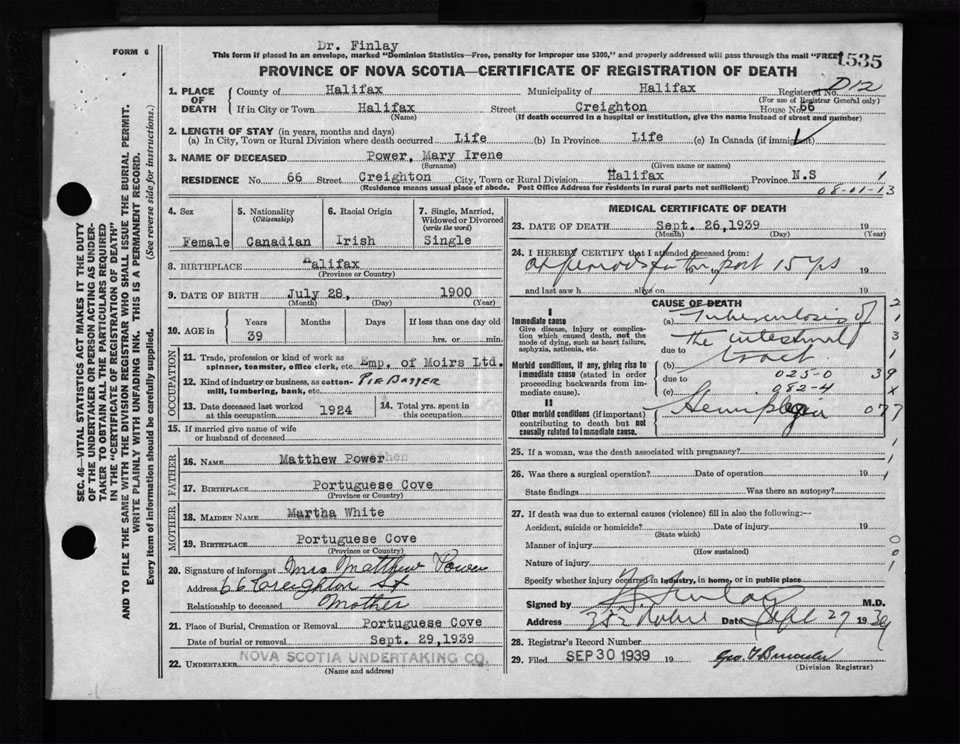 FORM 6
Dr. Finlay
This form if placed in an envelope, marked "Dominion Statistics—Free, penalty for improper use $300," and properly addressed will pass through the mail "FREE"
1535
PROVINCE OF NOVA SCOTIA—CERTIFICATE OF REGISTRATION OF DEATH
D12
1. PLACE OF DEATH
County of Halifax Municipality of Halifax Registered No.
(For use of Registrar General only)
If in City or Town Halifax Street Creighton House No. 66
(Name) (If death occurred in a hospital or institution, give the name instead of street and number)
2. LENGTH OF STAY (in years, months and days)
(a) In City, Town or Rural Division where death occurred Life (b) In Province Life (c) In Canada (if immigrant)
3. NAME OF DECEASED Power, Mary Irene
(Surname) (Given name or names)
RESIDENCE No. 66 Street Creighton City, Town or Rural Division Halifax Province N.S 1
(Residence means usual place of abode. Post Office Address for residents in rural parts not sufficient)
08-01-13
4. Sex
Female
5. Nationality
(Citizenship)
Canadian
6. Racial Origin
Irish
7. Single, Married, Widowed or Divorced
(write the word)
Single
8. BIRTHPLACE Halifax
(Province or Country)
9. DATE OF BIRTH July 28, 1900
(Month) (Day) (Year)
10. AGE in
Years Months Days If less than one day old
39 hrs. or min.
OCCUPATION
11. Trade, profession or kind of work as spinner, teamster, office clerk, etc. Emp. of Moirs Ltd.
12. Kind of industry or business, as cotton-mill, lumbering, bank, etc.
13. Date deceased last worked at this occupation 1924
14. Total yrs. spent in this occupation
15. If married give name of wife or husband of deceased
FATHER
16. NAME Matthew Power
17. BIRTHPLACE Portuguese Cove
(Province or Country)
MOTHER
18. MAIDEN NAME Martha White
19. BIRTHPLACE Portuguese Cove
(Province or Country)
20. Signature of informant Mrs Matthew Power
Address 66 Creighton St
Relationship to deceased Mother
21. Place of Burial, Cremation or Removal Portuguese Cove
Date of burial or removal Sept. 29, 1939
22. UNDERTAKER NOVA SCOTIA UNDERTAKING CO.
(Name and Address)
MEDICAL CERTIFICATE OF DEATH
23. DATE OF DEATH Sept. 26, 1939 19
(Month) (Day)
24. I HEREBY CERTIFY that I attended deceased from:
at periods for the past 15 yrs 19
and last saw h alive on 19
CAUSE OF DEATH
I
Immediate cause
Give disease, injury or complication which caused death, not the mode of dying, such as heart failure, asphyxia, asthenia, etc.
(a) Tuberculosis of
the intestinal
due to tract
Morbid conditions, if any, giving rise to immediate cause (stated in order proceeding backwards from immediate cause).
(b)
due to 025-0
(c) 082-4
II
Other morbid conditions (if important) contributing to death but not causally related to immediate cause.
Hemiplegia
25. If a woman, was the death associated with pregnancy?
26. Was there a surgical operation? Date of operation 19
State findings Was there an autopsy?
27. If death was due to external causes (violence) fill in also the following:—
Accident, suicide or homicide? Date of injury 19
(State which)
Manner of injury
(How sustained)
Nature of injury
Specify whether injury occurred in industry, in home, or in public place
Signed by Finlay M.D.
Address Date Sept 27 1939
28. Registrar's Record Number
29. Filed SEP 30 1939 19
(Division Registrar)
SEC. 46—VITAL STATISTICS ACT MAKES IT THE DUTY
OF THE UNDERTAKER OR PERSON ACTING AS UNDER-
TAKER TO OBTAIN ALL THE PARTICULARS REQUIRED
IN THE "CERTIFICATE OF REGISTRATION OF DEATH"
AND TO FILE THE SAME WITH THE DIVISION REGISTRAR WHO SHALL ISSUE THE BURIAL PERMIT.
WRITE PLAINLY WITH UNFADING INK. THIS IS A PERMANENT RECORD.
Every item of information should be carefully supplied. (See reverse side for instructions.)